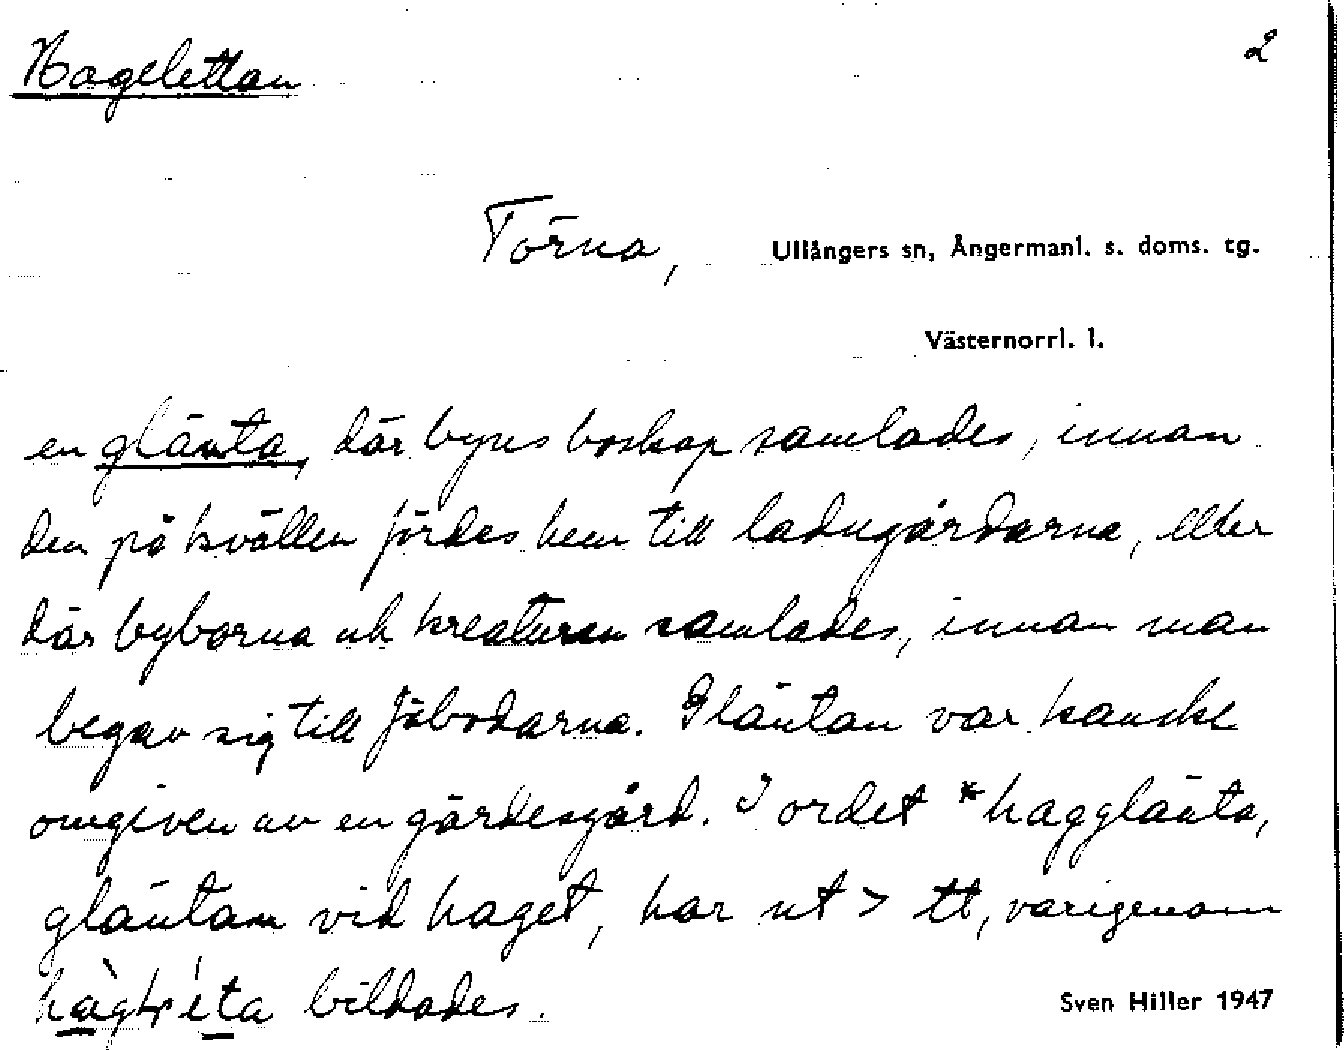 Hagelettan
2
Torna, Ullångers sn, Ångermanl. s. doms. tg.
Västernorrl. l.
en glänta, där byns boskap samlades, innan
den på kvällen fördes hem till ladugårdarna, eller
där byborna och kreaturen samlades, innan man
begav sig till fäbodarna. Gläntan var kanske
omgiven av en gärdesgård. I ordet *hagglänta,
gläntan vid haget, har nt > tt, varigenom
bildades.
Sven Hiller 1947